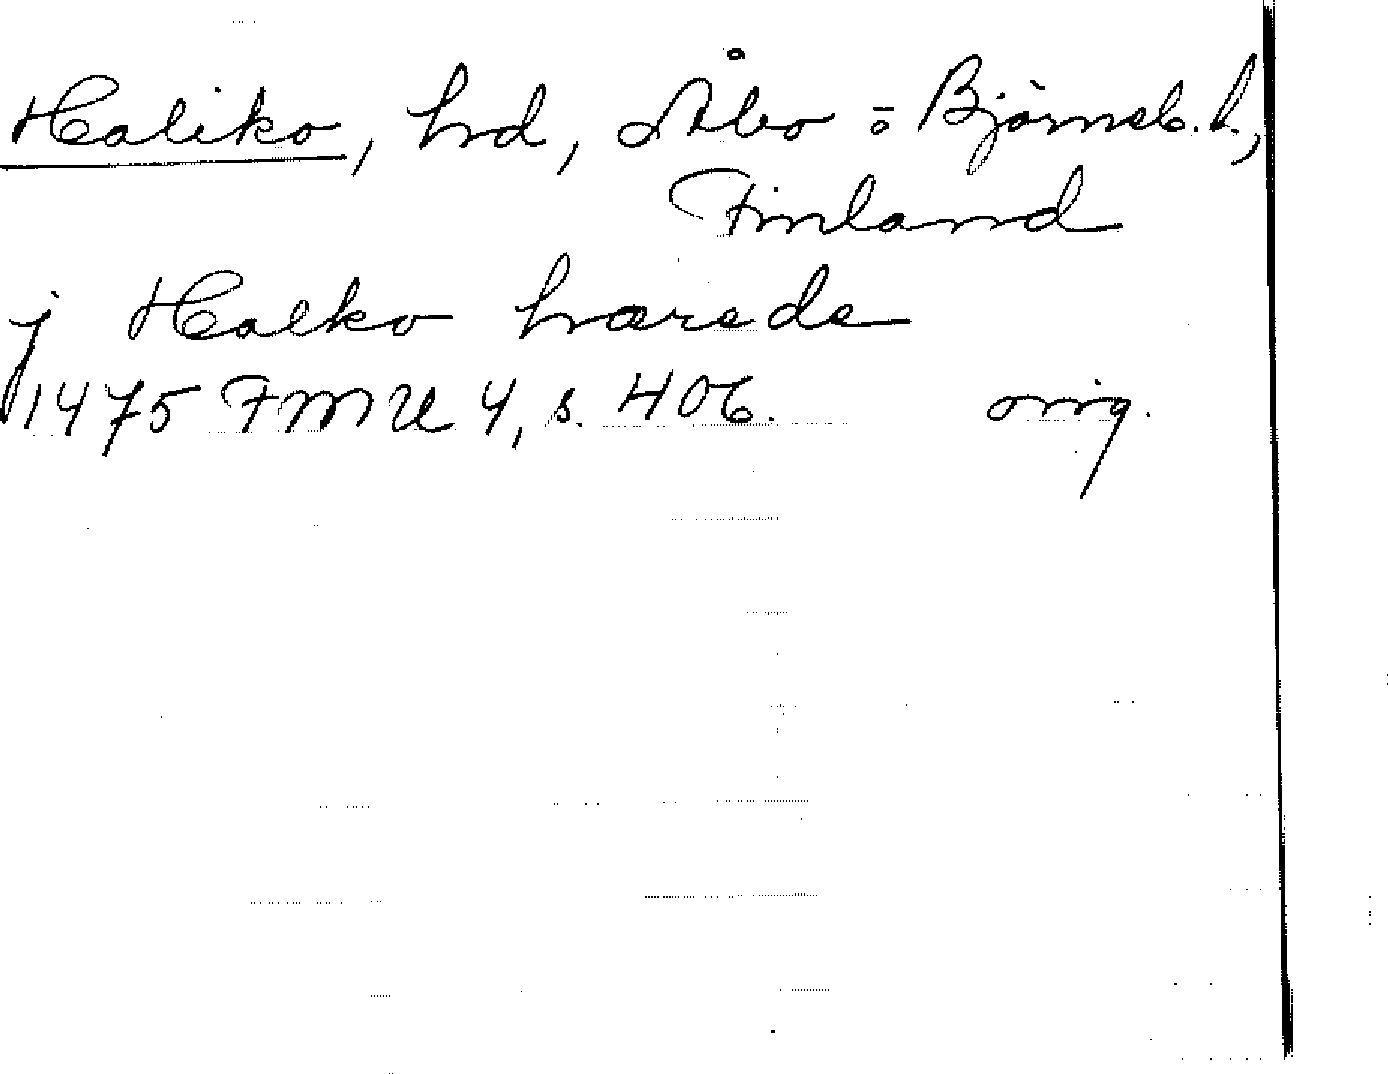 Haliko, hrd, Åbo o: Björneb. l.,
Finland
j Halko hærede
1475 FMU 4, s. 406. orig.